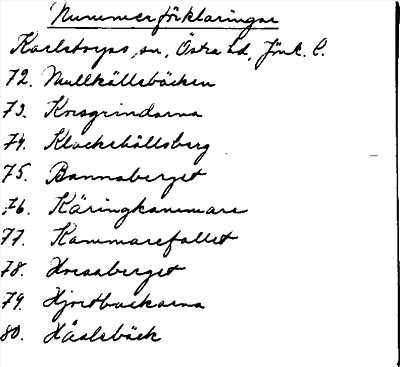 Nummerförklaringar
Karlstorps sn, Östra hd, Jönk. l.
72. Mullkällsbäcken
73. Korsgrindarna
74. Klockehällsberg
75. Bannaberget
76. Käringkammare
77. Kammarefallet
78. Hvesaberget
79. Hjortbackarna
80. Håalsbäck